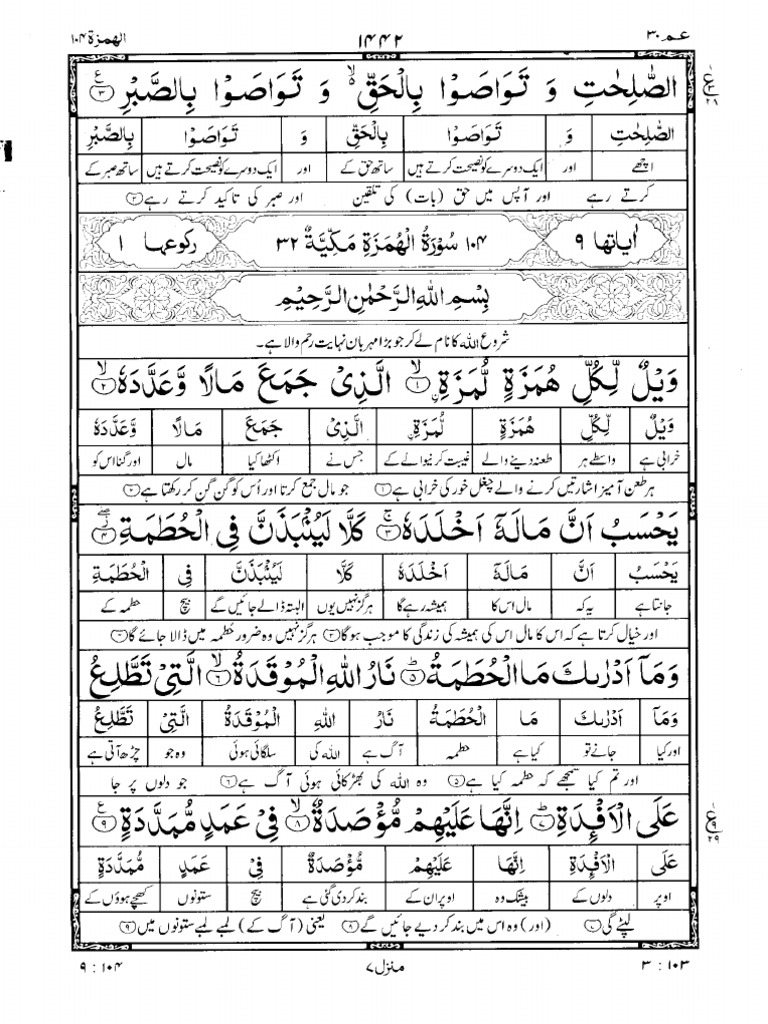 عـم ۳۰ ۱۴۴۲ الهمزة ۱۰۴
الصّٰلِحٰتِ وَ تَوَاصَوْا بِالْحَقِّ ۙ۬ وَ تَوَاصَوْا بِالصَّبْرِ ۳ ع
الصّٰلِحٰتِ وَ تَوَاصَوْا بِالْحَقِّ وَ تَوَاصَوْا بِالصَّبْرِ
اچھے اور ایک دوسرے کو نصیحت کرتے ہیں ساتھ حق کے اور ایک دوسرے کو نصیحت کرتے ہیں ساتھ صبر کے
کرتے رہے اور آپس میں حق (بات) کی تلقین اور صبر کی تاکید کرتے رہے ۳
اٰیاتها ۹ ۱۰۴ سُوْرَةُ الْهُمَزَةِ مَكِّيَّةٌ ۳۲ رکوعها ۱
بِسْمِ اللهِ الرَّحْمٰنِ الرَّحِيْمِ
شروع الله کا نام لے کر جو بڑا مہربان نہایت رحم والا ہے۔
وَيْلٌ لِّكُلِّ هُمَزَةٍ لُّمَزَةِ ۙ۱ الَّذِيْ جَمَعَ مَالًا وَّعَدَّدَهٗ ۙ۲
وَيْلٌ لِّكُلِّ هُمَزَةٍ لُّمَزَةِ الَّذِيْ جَمَعَ مَالًا وَّعَدَّدَهٗ
خرابی ہے واسطے ہر طعنہ دینے والے غیبت کرنیوالے کے جس نے اکٹھا کیا مال اور گنا اس کو
ہر طعن آمیز اشارتیں کرنے والے چغل خور کی خرابی ہے ۱ جو مال جمع کرتا اور اُس کو گن گن کر رکھتا ہے ۲
يَحْسَبُ اَنَّ مَالَهٗٓ اَخْلَدَهٗ ۚ۳ كَلَّا لَيُنْۢبَذَنَّ فِي الْحُطَمَةِ ۖ۴
يَحْسَبُ اَنَّ مَالَهٗٓ اَخْلَدَهٗ كَلَّا لَيُنْۢبَذَنَّ فِي الْحُطَمَةِ
جانتا ہے یہ کہ مال اس کا ہمیشہ رہے گا ہر گز نہیں یوں البتہ ڈالے جائیں گے بیچ حطمہ کے
اور خیال کرتا ہے کہ اس کا مال اس کی ہمیشہ کی زندگی کا موجب ہو گا ۳ ہر گز نہیں وہ ضرور حُطمہ میں ڈالا جائے گا ۴
وَمَآ اَدْرٰىكَ مَا الْحُطَمَةُ ؕ۵ نَارُ اللهِ الْمُوْقَدَةُ ۙ۶ الَّتِيْ تَطَّلِعُ
وَمَآ اَدْرٰىكَ مَا الْحُطَمَةُ نَارُ اللهِ الْمُوْقَدَةُ الَّتِيْ تَطَّلِعُ
اور کیا جانے تو کیا ہے حطمہ آگ ہے الله کی سلگائی ہوئی وہ جو چڑھ آتی ہے
اور تم کیا سمجھے کہ حطمہ کیا ہے ۵ وہ الله کی بھڑکائی ہوئی آگ ہے ۶ جو دلوں پر جا
عَلَى الْاَفْـِٕدَةِ ؕ۷ اِنَّهَا عَلَيْهِمْ مُّؤْصَدَةٌ ۙ۸ فِيْ عَمَدٍ مُّمَدَّدَةٍ ۹ ع
عَلَى الْاَفْـِٕدَةِ اِنَّهَا عَلَيْهِمْ مُّؤْصَدَةٌ فِيْ عَمَدٍ مُّمَدَّدَةٍ
اوپر دلوں کے بیشک وہ اوپر ان کے بند کر دی گئی ہے بیچ ستونوں کھچے ہوؤں کے
لپٹے گی ۷ (اور) وہ اس میں بند کر دیے جائیں گے ۸ یعنی (آگ کے) لمبے لمبے ستونوں میں ۹
۳ : ۱۰۳ منزل ۷ ۹ : ۱۰۴